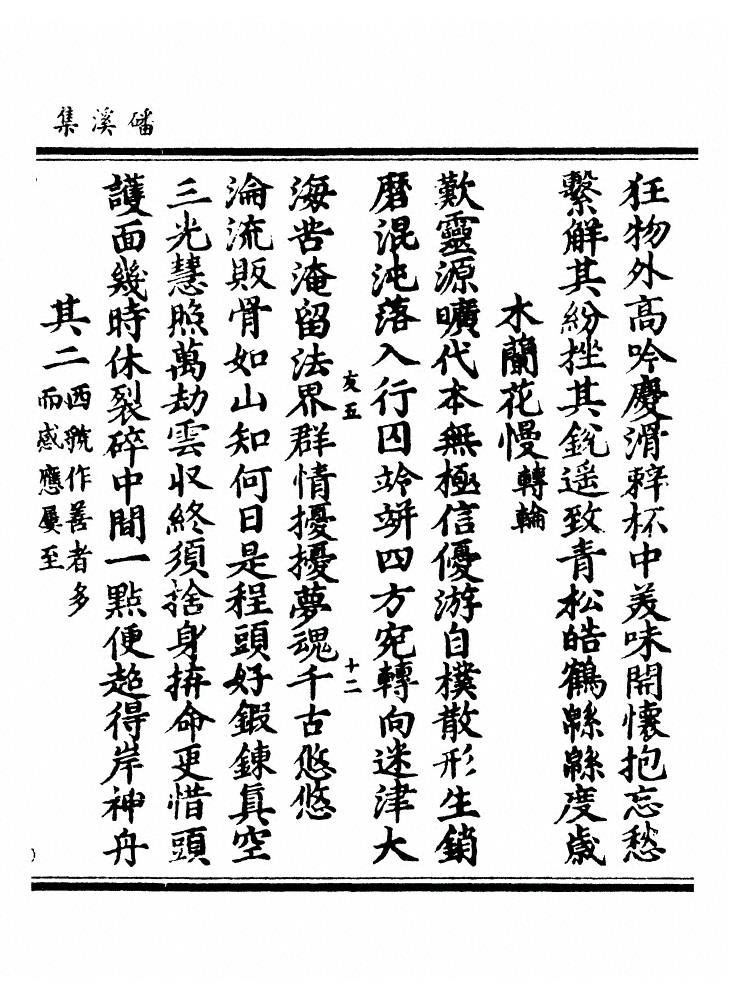 磻溪集
狂物外高吟慶滑辢杯中美味開懷抱忘愁
繫解其紛挫其銳遥致青松皓鶴緜緜度歲
木蘭花慢轉輪
歎靈源曠代本無極信優游自樸散形生銷
磨混沌落入行囚竛竮四方宛轉向迷津大
友五
十二
海苦淹留法界群情擾擾夢魂千古悠悠
淪流販骨如山知何日是程頭好鍜鍊眞空
三光慧照萬劫雲收終須捨身拚命更惜頭
護面幾時休裂碎中間一點便超得岸神舟
其二西虢作善者多
而感應屢至